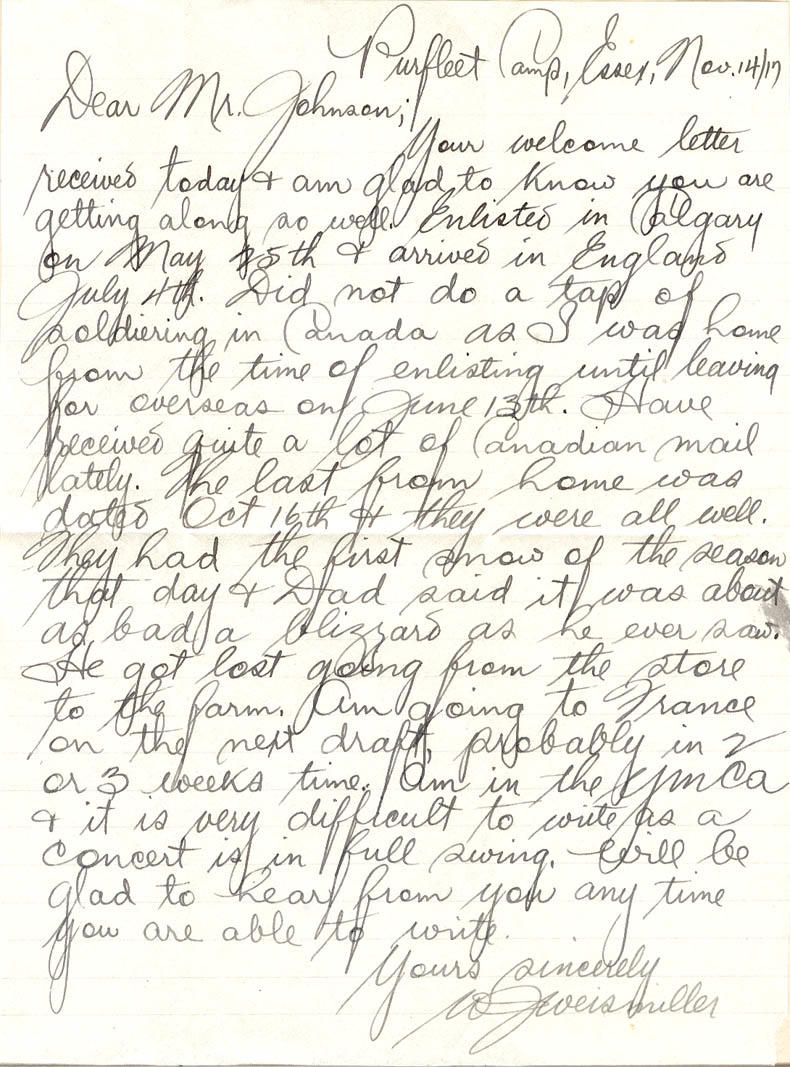 Purfleet Camp, Essex, Nov. 14/17
Dear Mr. Johnson;
Your welcome letter
received today & am glad to know you are
getting along so well. Enlisted in Calgary
on May 25th & arrived in England
July 4th. Did not do a tap of
soldiering in Canada as I was home
from the time of enlisting until leaving
for overseas on June 13th. Have
received quite a lot of Canadian mail
lately. The last from home was
dated Oct 16th & they were all well.
They had the first snow of the season
that day & Dad said it was about
as bad a blizzard as he ever saw.
He got lost going from the store
to the farm. Am going to France
on the next draft, probably in 2
or 3 weeks time. Am in the YMCA
& it is very difficult to write as a
concert is in full swing. Will be
glad to hear from you any time
you are able to write.
Yours sincerely
W J Weismiller